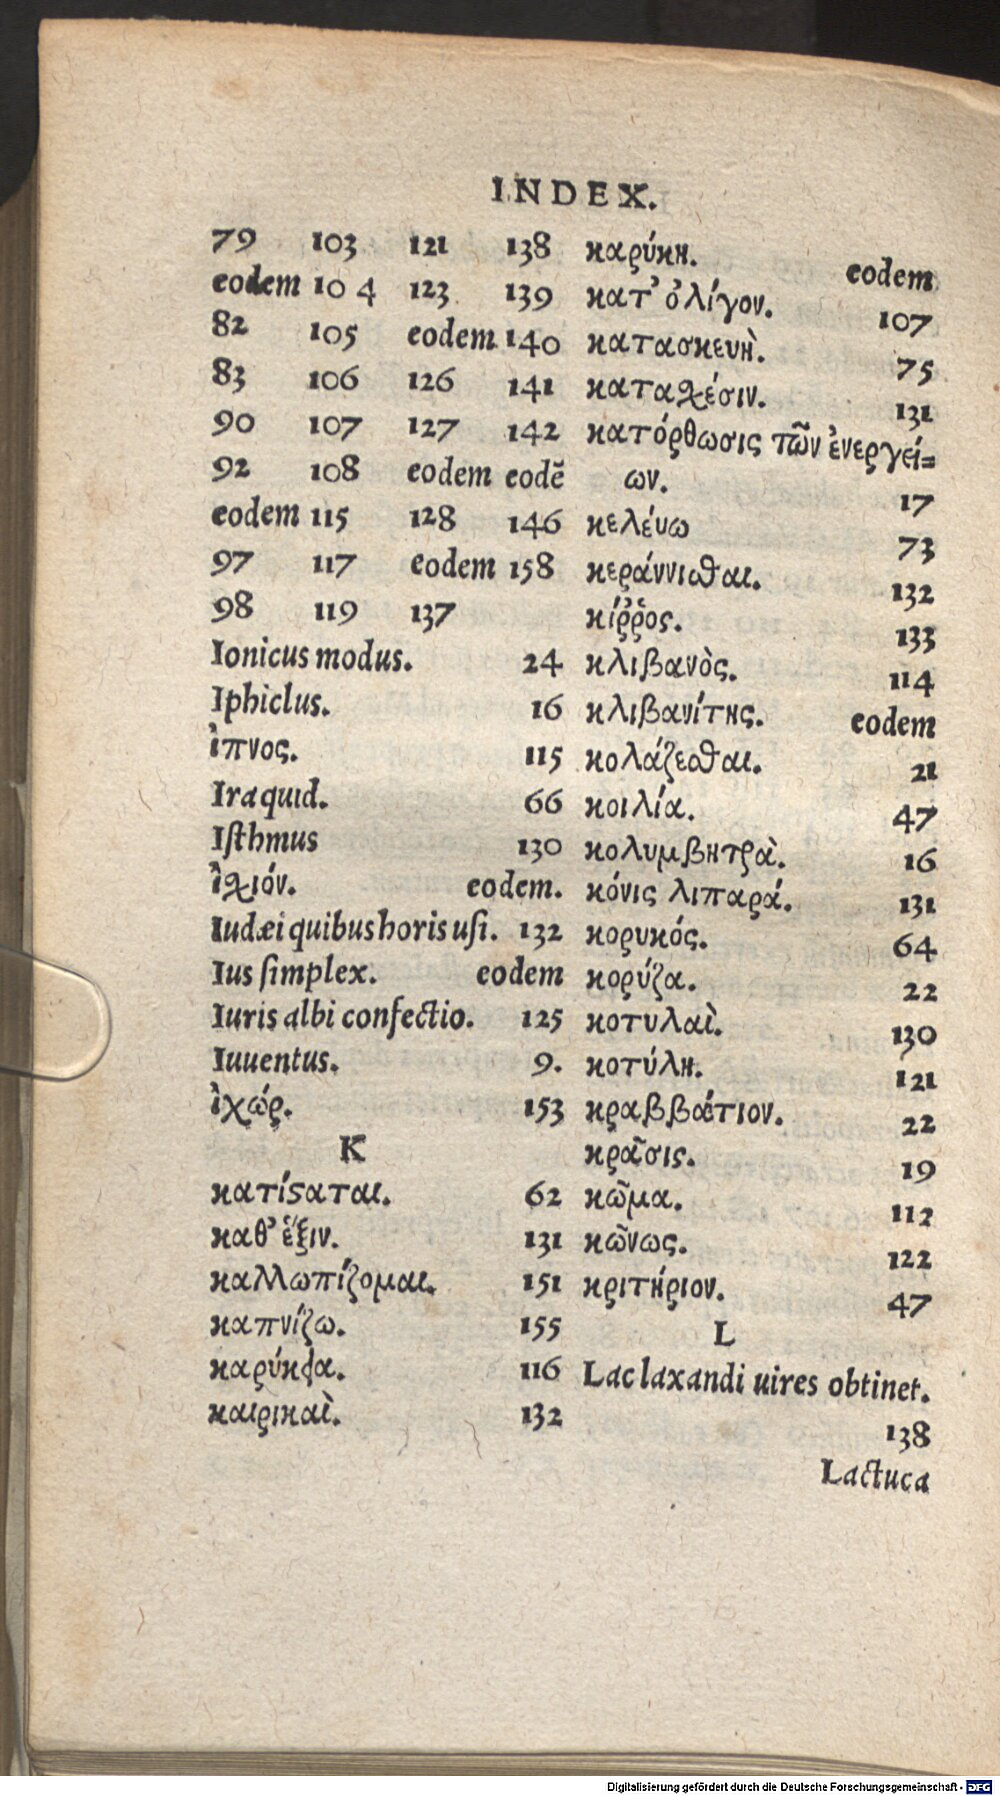 INDEX.
79 103 121 138
eodem 10 4 123 139
82 105 eodem 140
83 106 126 141
90 107 127 142
92 108 eodem eodē
eodem 115 128 146
97 117 eodem 158
98 119 137
Ionicus modus. 24
Iphiclus. 16
ἰπνος. 115
Ira quid. 66
Isthmus 130
ἰχιόν. eodem.
Iudæi quibus horis usi. 132
Ius simplex. eodem
Iuris albi confectio. 125
Iuuentus. 9.
ἰχώρ. 153
K
κατίϛαται. 62
καθ' ἕξιν. 131
καλλωπίζομαι. 151
καπνίζω. 155
καρύκεια. 116
καιρικαὶ. 132
καρύκη. eodem
κατ' ὀλίγον. 107
κατασκευὴ. 75
κατασχέσιν. 131
κατόρθωσις τῶν ἐνεργεί=
ων. 17
κελέυω 73
κεράννισθαι. 132
κίῤῥος. 133
κλιβανὸς. 114
κλιβανίτης. eodem
κολάζεσθαι. 21
κοιλία. 47
κολυμβητρὰ. 16
κόνις λιπαρά. 131
κορυκός. 64
κορύζα. 22
κοτυλαὶ. 130
κοτύλη. 121
κραββάτιον. 22
κρᾶσις. 19
κῶμα. 112
κῶνως. 122
κριτήριον. 47
L
Lac laxandi uires obtinet.
138
Lactuca
Digitalisierung gefördert durch die Deutsche Forschungsgemeinschaft - DFG